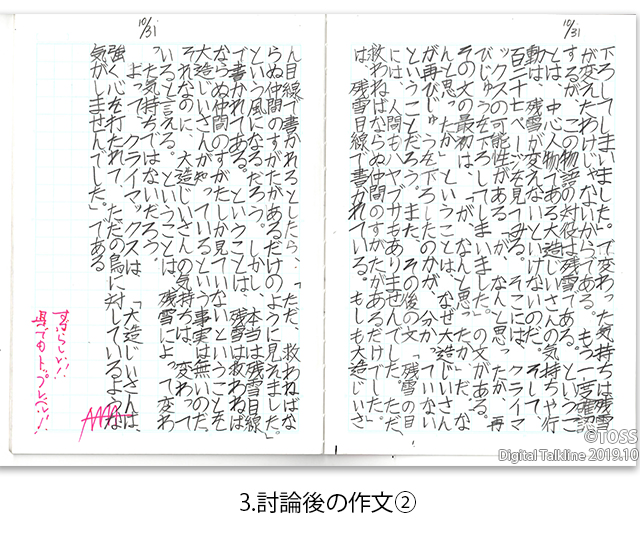 10/31
下ろしてしまいました。で変わった気持ちは残雪
が変えたわけじゃないからである。もう一度確認
するが、この物語の対役は残雪である。というこ
とは、中心人物である大造じいさんの気持ちや行
動は、残雪が変えないといけないのだ。そして、
百二十七ページを見てみる。そこには、クライマ
ックスの可能性がある「が、なんと思ったか、再
びじゅうを下ろしてしまいました。」の文がある。
その文の最初は、「が、なんと思ったか」だ。「な
んと思ったか」ということは、なぜ大造じいさん
が再びじゅうを下ろしたのかが、分かっていない
ということだろう。また、その後の文「残雪の目
には、人間もハヤブサもありませんでした。ただ
救わねばならぬ仲間のすがたがあるだけでした。」
は、残雪目線で書かれている。もしも大造じいさ
10/31
ん目線で書かれるとしたら、「ただ、救わねばな
らぬ仲間のすがたがあるだけのように見えました。」
という風になるだろう。しかし、本当は残雪目線
で書かれてある。ということは、残雪は救わねば
ならぬ仲間のすがたしか見ていないということそ
大造じいさんがやっているという事実は無いのだ。
それなのに、大造じいさんの気持ちは、変わって
いると言える。ということは、残雪によって変わ
った気持ちではないだろう。
よって、クライマックスは、「大造じいさんは、
強く心を打たれて、ただの鳥に対しているような
気がしませんでした。」である
すばらしい!!
県でもトップレベル!!
AAAA
©TOSS
Digital Talkline 2019.10
3.討論後の作文②